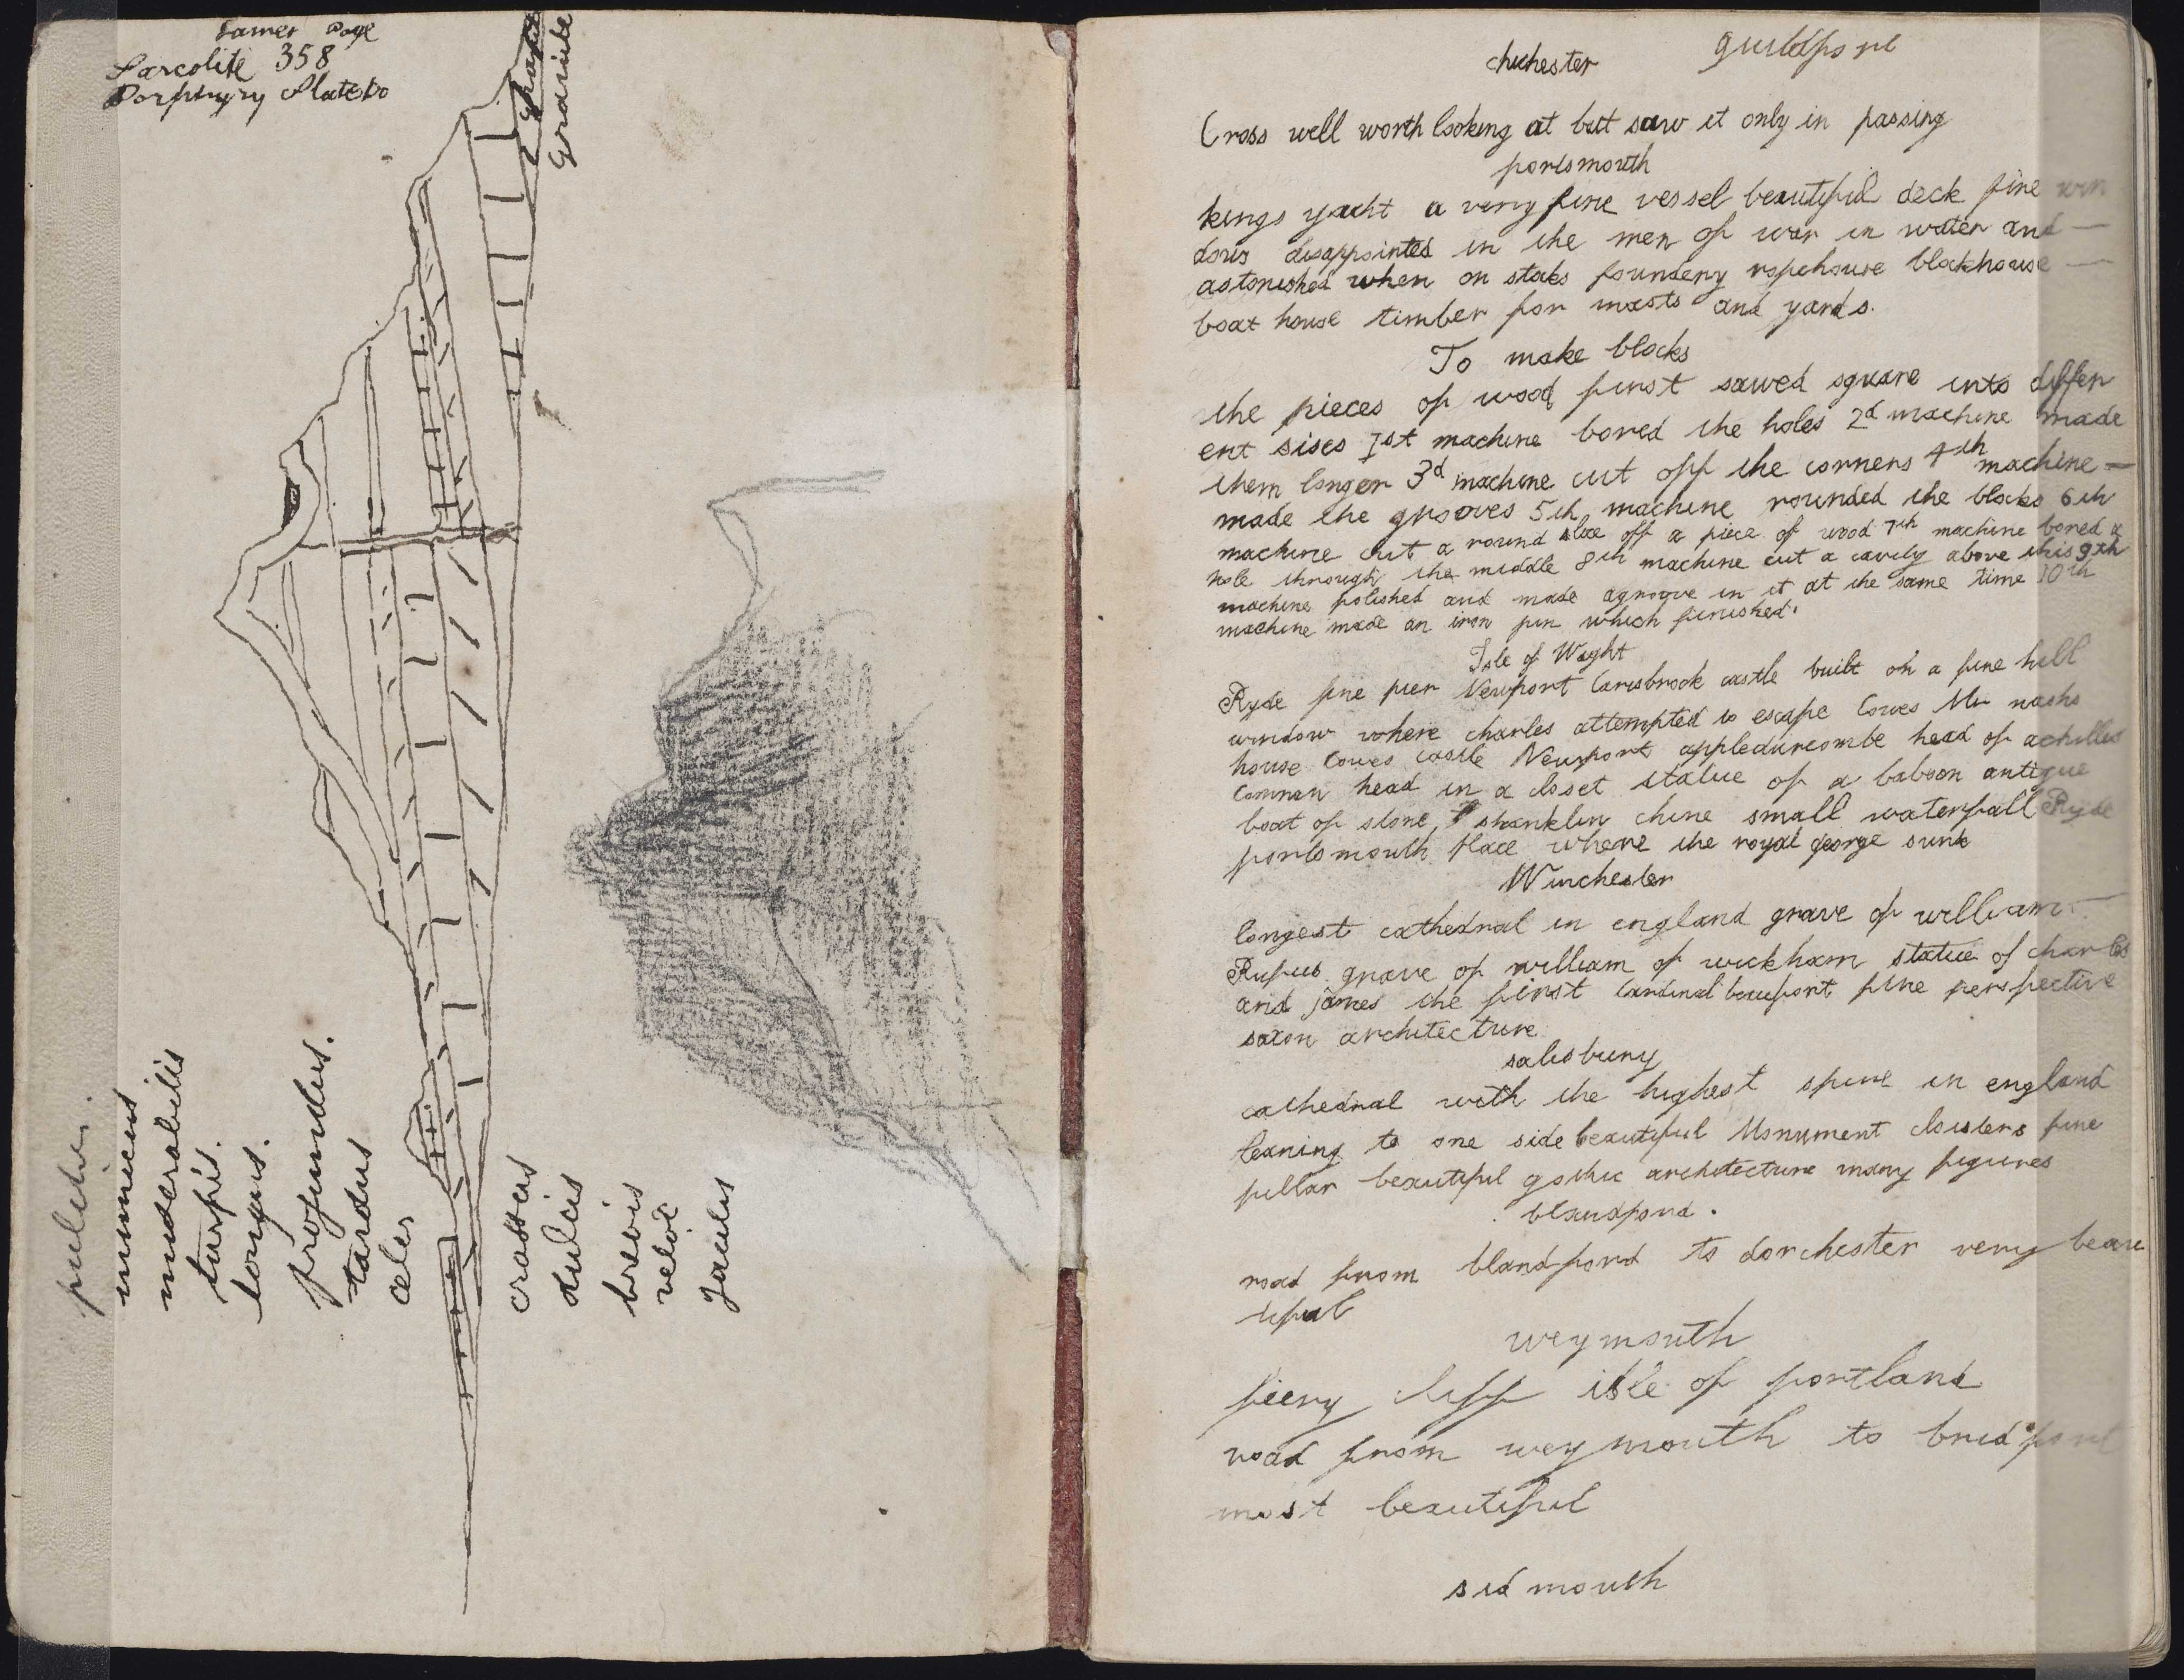 James Page
Sarcolite 358
Porphyry Slate Do
Granite
pulcher.
inimicus
miderabilis
turpis.
longus.
profundus.
tardus
celer
crassus
dulcis
brevis
velox
Jaculus
chichester guildford
Cross well worth looking at but saw it only in passing
portsmouth
kings yacht a very fine vessel beautiful deck fine win
dows disappointed in the men of war in water and —
astonished when on stoks foundery ropehouse blockhouse —
boat house timber for masts and yards.
To make blocks
the pieces of wood first sawed square into differ
ent sises 1st machine bored the holes 2d machine made
them longer 3d machine cut off the corners 4th machine —
made the grooves 5th machine rounded the blocks 6th
machine cut a round slice off a piece of wood 7th machine bored a
hole through the middle 8th machine cut a cavity above this 9th
machine polished and made agroove in it at the same time 10th
machine made an iron pin which finished.
Isle of Wight
Ryde fine pier Newport Carisbrook castle built on a fine hill
window where charles attempted to escape Cowes Mr nashs
house Cowes castle Newport appledurcombe head of achilles
Common head in a closet statue of a baboon antique
boat of stone shanklin chine small waterfall Ryde
portsmouth place where the royal george sunk
Winchester
longest cathedral in england grave of william —
Rufus grave of william of wickham statue of charles
and james the first Cardinal beaufort fine perspective
saxon architecture
salisbury
cathedral with the highest spire in england
leaning to one side beautiful Monument cloisters fine
pillar beautiful gothic architecture many figures
blandford.
road from blandford to dorchester very beau
tiful
weymouth
fiery cliff isle of portland
road from weymouth to bridport
most beautiful
sidmouth